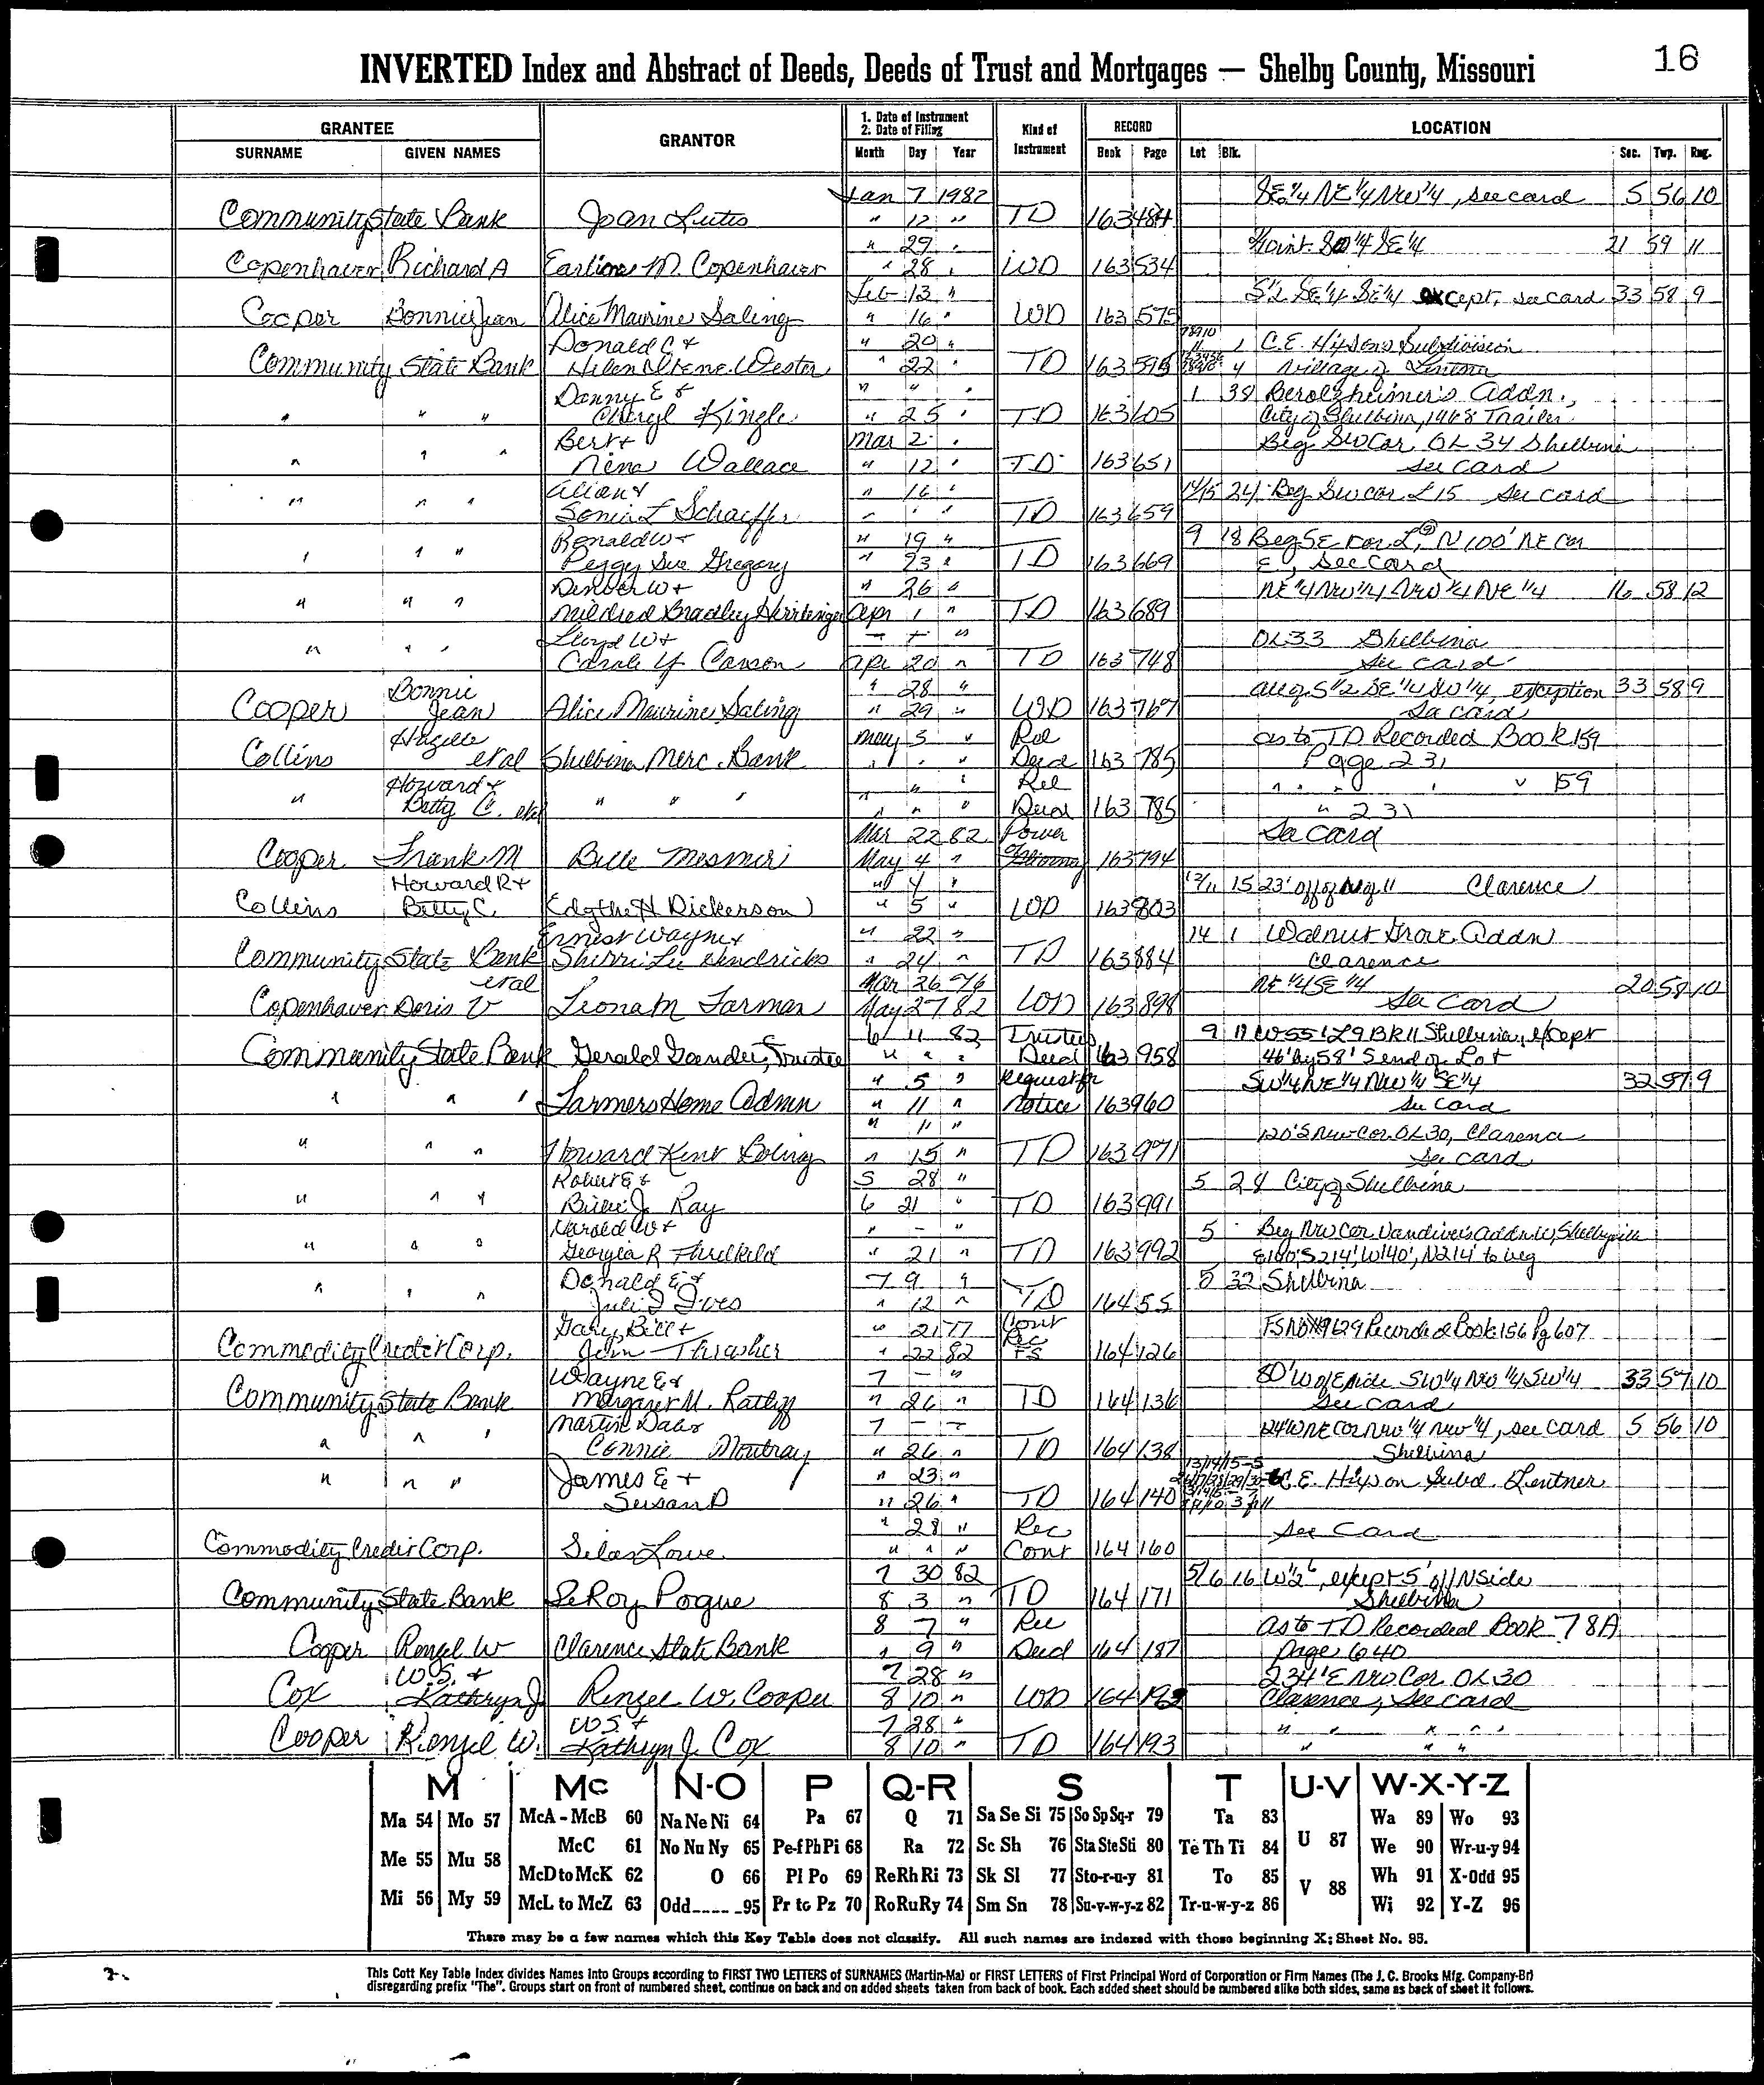 16
INVERTED Index and Abstract of Deeds, Deeds of Trust and Mortgages — Shelby County, Missouri
GRANTEE GRANTOR 1. Date of Instrument 2. Date of Filing Kind of Instrument RECORD LOCATION
SURNAME GIVEN NAMES Month Day Year Book Page Lot Blk. Sec. Twp. Rng.
Jan 7 1982 SE 1/4 NE 1/4 NW 1/4, see card 5 56 10
Community State Bank Joan Lutes " 12 " TD 163 484
" 29 " SE 1/4 21 59 11
Copenhaver Richard A Earline M. Copenhaver " 28 " WD 163 534
Feb 13 " S 1/2 SE 1/4 SE 1/4 except, see card 33 58 9
Cooper Bonnie Jean Alice Maurine Saling " 16 " WD 163 575
Donald C + " 20 " 1 C.E. Hysons Subdivision
Community State Bank Helen Wester " 22 " TD 163 595 4 Village of Lentner
Danny E + " " " 1 38 Berolzheimer's Addn.,
" " " Cheryl Kingle " 25 " TD 163 605 City of Shelbina, 1968 Trailer
Bert + Mar 2 " Beg SW Cor OL 34 Shelbina
" " " Nina Wallace " 12 " TD 163 651 See Card
Alian + " 16 " 14/15 24 Beg SW cor L 15 See card
" " " Sonia L Schaeffer " " " TD 163 659
Ronald W + " 19 " 9 18 Beg SE cor L 9, N 100' NE cor
" " " Peggy Sue Gregory " 23 " TD 163 669 E, See Card
Denver W + " 26 " NE 1/4 NW 1/4 NW 1/4 NE 1/4 16 58 12
" " " Mildred Bradley Apr 1 " TD 163 689
Lloyd W + - + " OL 33 Shelbina
" " " Carole Y Carson Apr 20 " TD 163 748 See card
Bonnie " 28 " all of S 1/2 SE 1/4 SW 1/4, exception 33 58 9
Cooper Jean Alice Maurine Saling " 29 " WD 163 767 See card
May 3 " Rel as to TD Recorded Book 159
Collins et al Shelbina Merc. Bank " " " Deed 163 785 Page 231
Howard + " " Rel " " " " " 159
" Betty C. et al " " " " " " Deed 163 785 " 231
Mar 22 82 Power See Card
Cooper Frank M Belle May 4 " of Attorney 163 794
Howard R + " 4 " 12/11 15 23' off of 11 Clarence
Collins Betty C. Edythe H Dickerson " 5 " WD 163 803
Ernest Wayne + " 22 " 14 1 Walnut Grove Addn
Community State Bank Sherri Lee Hendricks " 24 " TD 163 884 Clarence
et al Mar 26 76 NE 1/4 SE 1/4 20 58 10
Copenhaver Doris V Leona M Farman May 27 82 WD 163 898 See Card
6 11 82 Trustees 9 11 W 55' L 9 BK 11 Shelbina, except
Community State Bank Gerald Gander, Trustee " " " Deed 163 958 46' by 58' S end of Lot
" 5 " Request for SW 1/4 NE 1/4 NW 1/4 SE 1/4 32 57 9
" " " Farmers Home Admn " 11 " Notice 163 960 See Card
" 11 " 120' S NW Cor OL 30, Clarence
" " " Howard Kent Boling " 15 " TD 163 971 See card
Robert E + 5 28 " 5 28 City of Shelbina
" " " Billie J Ray 6 21 " TD 163 991
Harold W + " - " 5 Beg NW Cor Vandivers Addn to Shelbyville
" " " Georgia R Threlkeld " 21 " TD 163 992 S 214', W 140', N 214' to beg
Donald E + 7 9 " 5 32 Shelbina
" " " Julie " 12 " TD 164 55
Gary, Bill + " 21 77 Cont FS No #9629 Recorded Book 156 Pg 607
Commodity Credit Corp. Thrasher " 22 82 Rec FS 164 126
Wayne E + 7 - " 80' W of E side SW 1/4 NW 1/4 SW 1/4 33 57 10
Community State Bank Margaret M. Ratliff " 26 " TD 164 136 See card
Martin Dale + 7 - - NE cor NW 1/4 NW 1/4, see card 5 56 10
" " " Connie Moutray " 26 " TD 164 138 Shelbina
James E + " 23 " 13/14/15-5 C.E. Hyson Subd. Lentner
" " " Susan D " 26 " TD 164 140
" 28 " Rec See Card
Commodity Credit Corp. Silas Lowe " " " Cont 164 160
7 30 82 5/6 16 W 1/2 6, except 5' off N Side
Community State Bank LeRoy Pogue 8 3 " TD 164 171 Shelbina
8 7 " Rel as to TD Recorded Book 78A
Cooper Renzel W Clarence State Bank " 9 " Deed 164 187 page 640
W.S. + 7 28 " 234' E NW Cor OL 30
Cox Kathryn J Renzel W. Cooper 8 10 " WD 164 192 Clarence, See Card
W S + 7 28 " " " " " "
Cooper Renzel W. Kathryn J. Cox 8 10 " TD 164 193 " " "
M Mc N-O P Q-R S T U-V W-X-Y-Z
Ma 54 Mo 57 McA - McB 60 Na Ne Ni 64 Pa 67 Q 71 Sa Se Si 75 So Sp Sq-r 79 Ta 83 U 87 Wa 89 Wo 93
Me 55 Mu 58 McC 61 No Nu Ny 65 Pe-f Ph Pi 68 Ra 72 Sc Sh 76 Sta Ste Sti 80 Te Th Ti 84 We 90 Wr-u-y 94
McD to McK 62 O 66 Pl Po 69 Re Rh Ri 73 Sk Sl 77 Sto-r-u-y 81 To 85 V 88 Wh 91 X-Odd 95
Mi 56 My 59 McL to McZ 63 Odd 95 Pr to Pz 70 Ro Ru Ry 74 Sm Sn 78 Su-v-w-y-z 82 Tr-u-w-y-z 86 Wi 92 Y-Z 96
There may be a few names which this Key Table does not classify. All such names are indexed with those beginning X; Sheet No. 95.
This Cott Key Table Index divides Names into Groups according to FIRST TWO LETTERS of SURNAMES (Martin-Ma) or FIRST LETTERS of First Principal Word of Corporation or Firm Names (The J. C. Brooks Mfg. Company-Br)
disregarding prefix "The". Groups start on front of numbered sheet, continue on back and on added sheets taken from back of book. Each added sheet should be numbered alike both sides, same as back of sheet it follows.